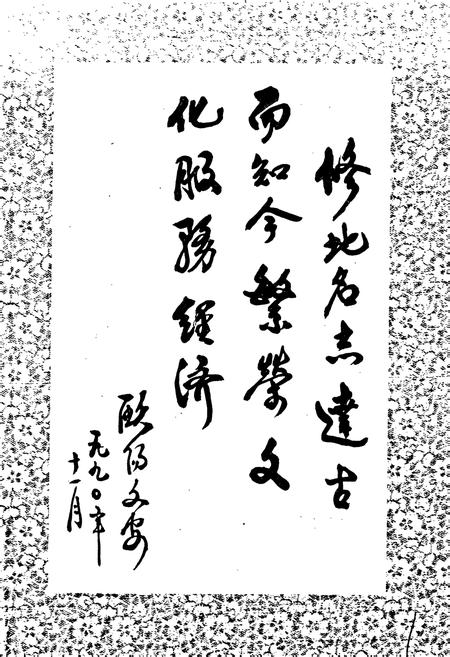 修地名志达古
而知今繁荣文
化服务經济
欧阳文安
一九九〇年
十一月